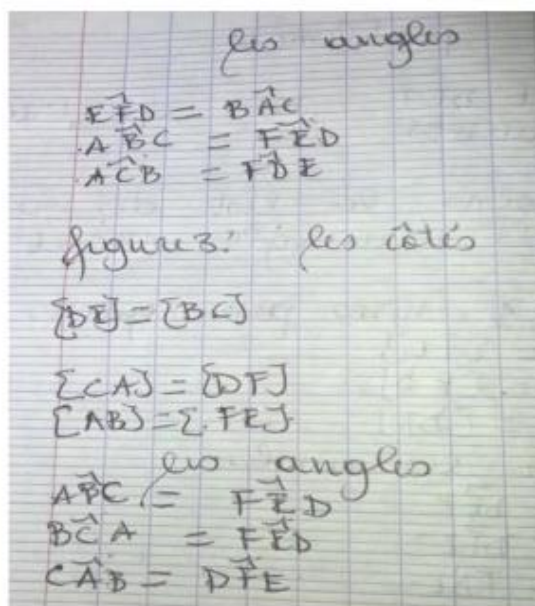 les angles
EF̂D = BÂC
AB̂C = FÊD
AĈB = FD̂E
figure 3: les côtés
[DE] = [BC]
[CA] = [DF]
[AB] = [FE]
les angles
AB̂C = FÊD
BĈA = FÊD
CÂB = DF̂E